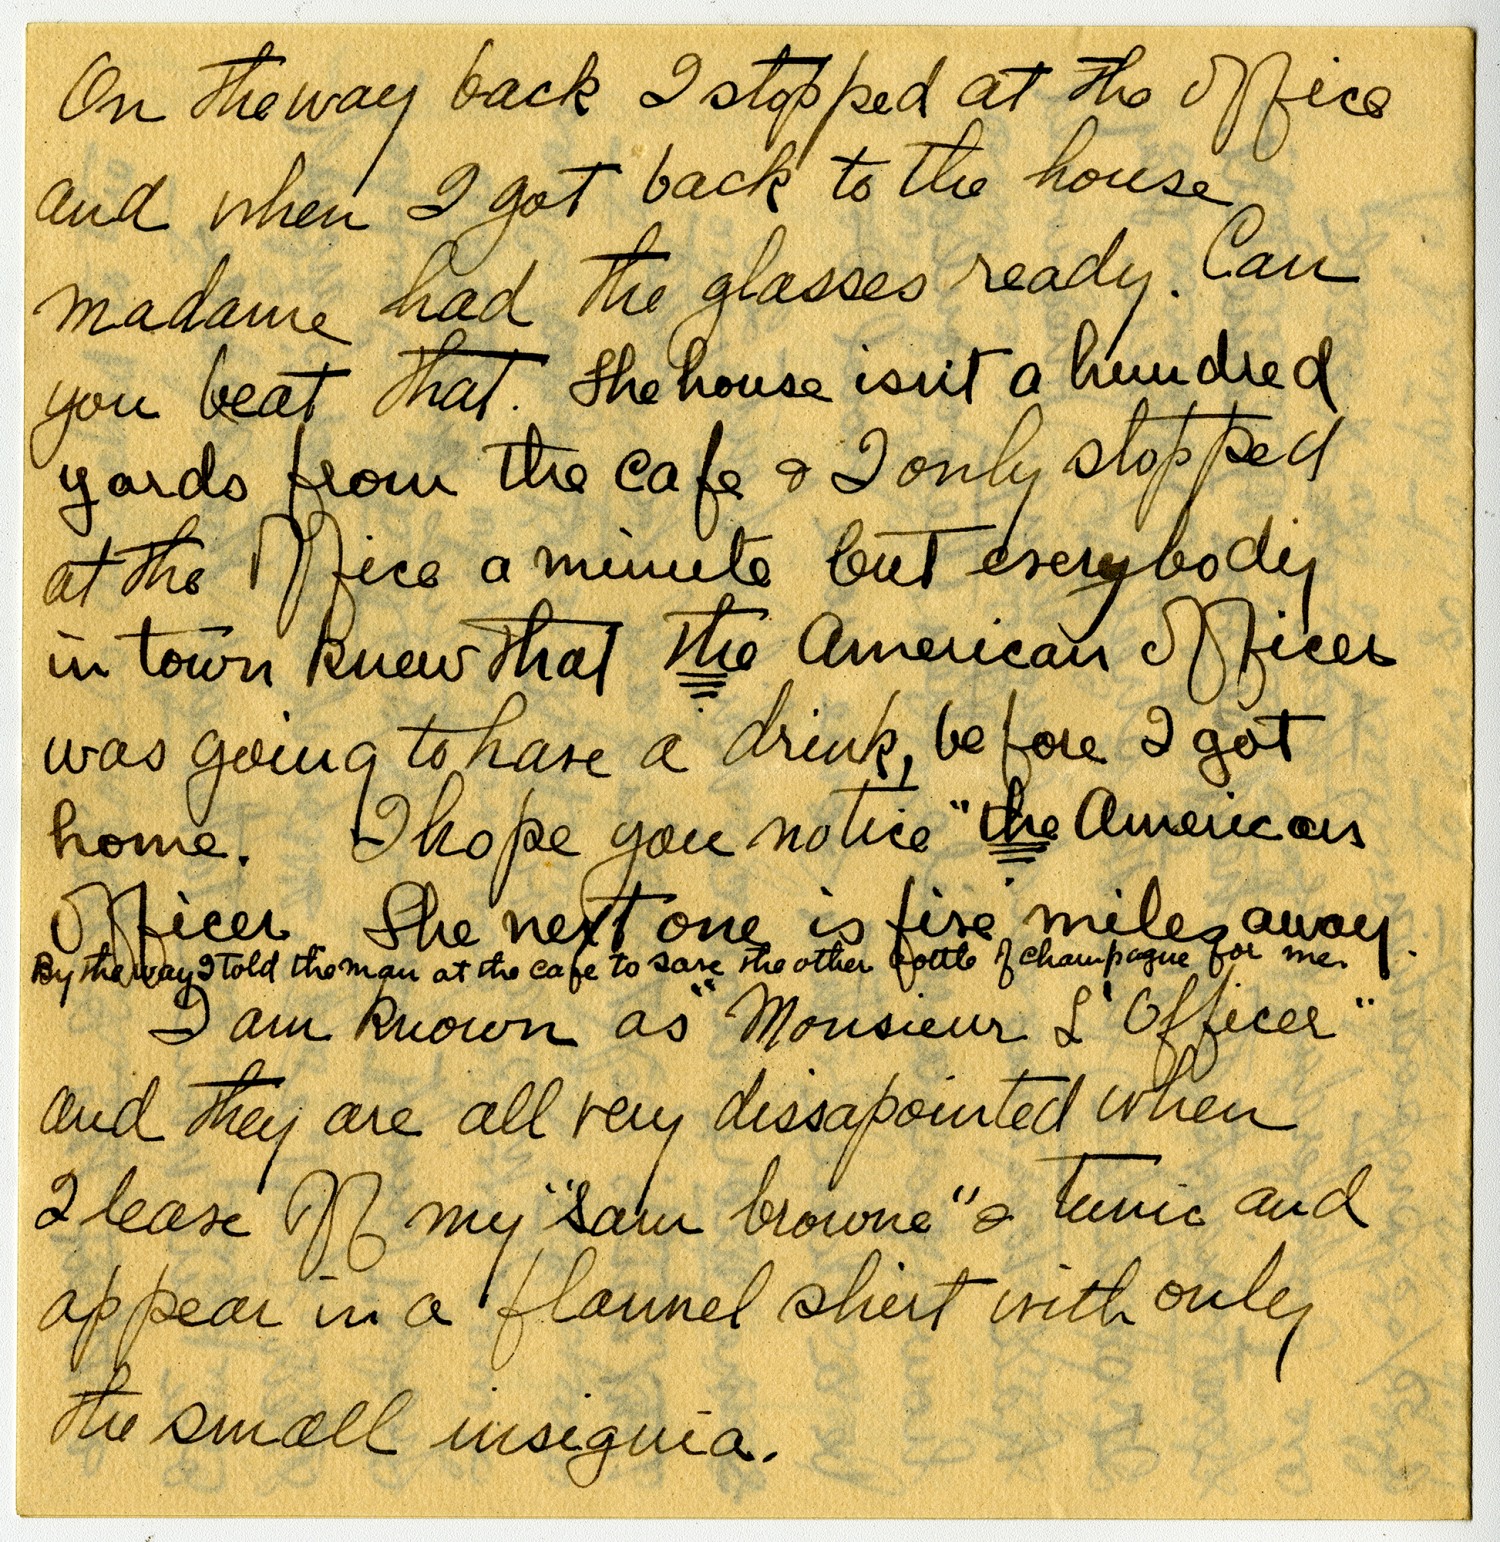 On the way back I stopped at the office
and when I got back to the house
madame had the glasses ready. Can
you beat that. The house isn't a hundred
yards from the cafe & I only stopped
at the office a minute but everybody
in town knew that the American officer
was going to have a drink, before I got
home. I hope you notice "the American
officer The next one is five miles away.
By the way I told the man at the cafe to save the other bottle of champagne for me.
I am known as "Monsieur L'Officer"
and they are all very dissapointed when
I leave off my "Sam browne" & tunic and
appear in a flannel shirt with only
the small insignia.